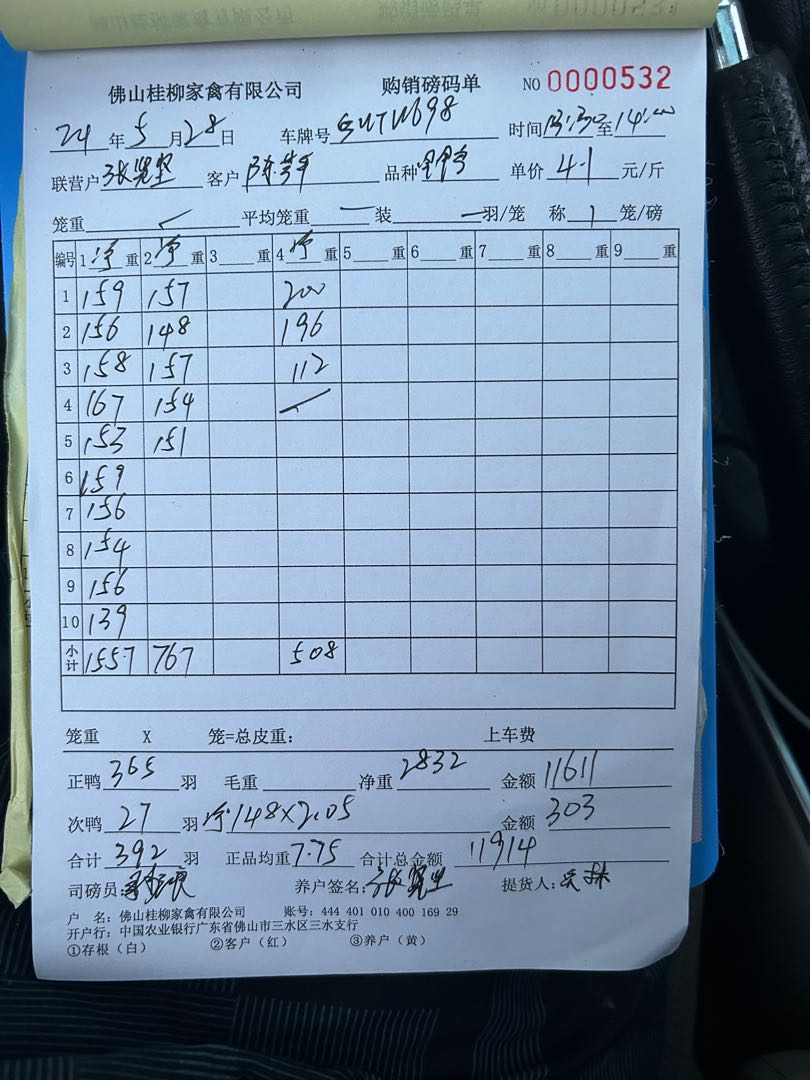 佛山桂柳家禽有限公司 购销磅码单 NO 0000532
24 年 5 月 28 日 车牌号 时间 13:30 至 14:00
联营户 客户 品种 单价 4.1 元/斤
笼重 ✓ 平均笼重 — 装 — 羽/笼 称 1 笼/磅
编号 1 净 重 2 净 重 3 重 4 净 重 5 重 6 重 7 重 8 重 9 重
1 159 157 200
2 156 148 196
3 158 157 112
4 167 154
5 153 151
6 159
7 156
8 154
9 156
10 139
小计 1557 767 508
笼重 X 笼=总皮重: 上车费
正鸭 365 羽 毛重 净重 2832 金额 11611
次鸭 27 羽 净148×2.05 金额 303
合计 392 羽 正品均重 7.75 合计总金额 11914
司磅员: 养户签名: 提货人:
户 名: 佛山桂柳家禽有限公司 账号: 444 401 010 400 169 29
开户行: 中国农业银行广东省佛山市三水区三水支行
①存根(白) ②客户(红) ③养户(黄)